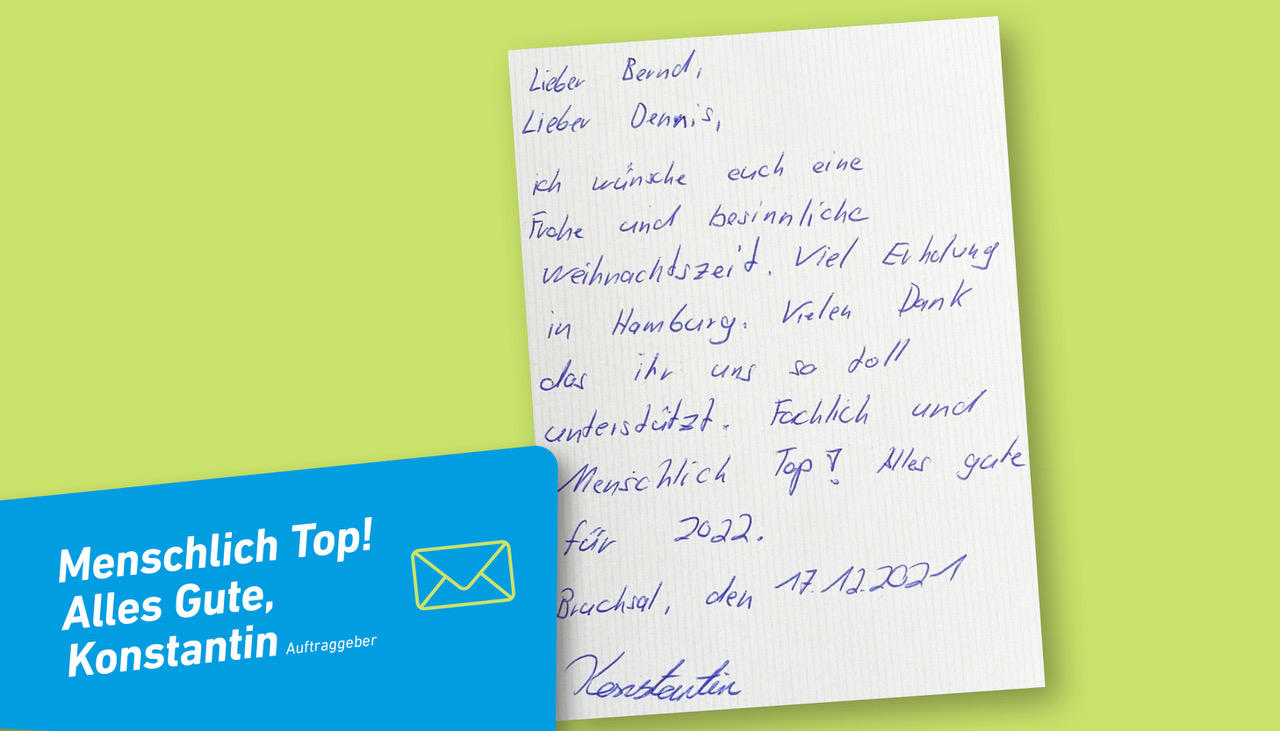 Lieber Bernd,
Lieber Dennis,
ich wünsche euch eine
Frohe und besinnliche
Weihnachtszeit. Viel Erholung
in Hamburg. Vielen Dank
das ihr uns so toll
unterstützt. Fachlich und
Menschlich Top! Alles gute
für 2022.
Bruchsal, den 17.12.2021
Konstantin
Menschlich Top!
Alles Gute,
Konstantin Auftraggeber